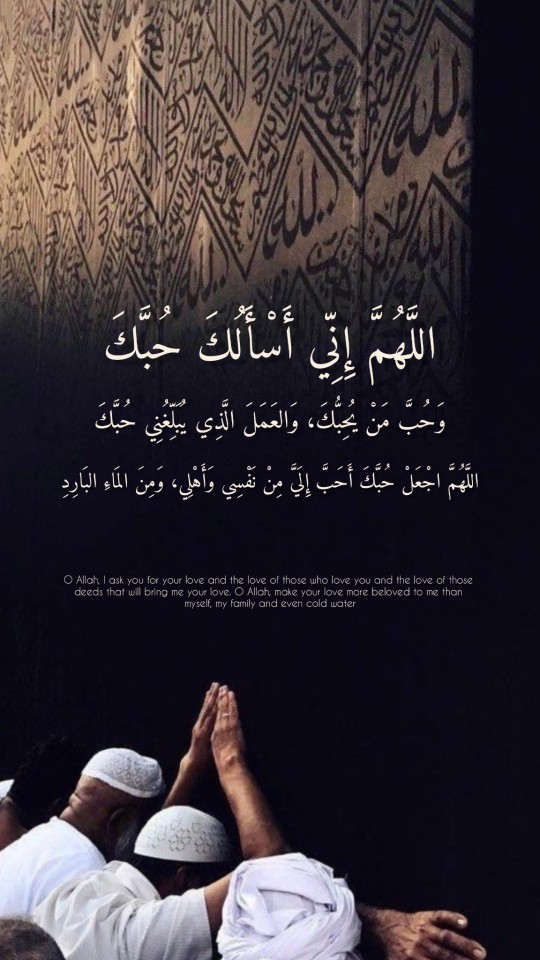 اللَّهُمَّ إِنِّي أَسْأَلُكَ حُبَّكَ
وَحُبَّ مَنْ يُحِبُّكَ، وَالعَمَلَ الَّذِي يُبَلِّغُنِي حُبَّكَ
اللَّهُمَّ اجْعَلْ حُبَّكَ أَحَبَّ إِلَيَّ مِنْ نَفْسِي وَأَهْلِي، وَمِنَ المَاءِ البَارِدِ
O Allah, I ask you for your love and the love of those who love you and the love of those
deeds that will bring me your love. O Allah, make your love more beloved to me than
myself, my family and even cold water